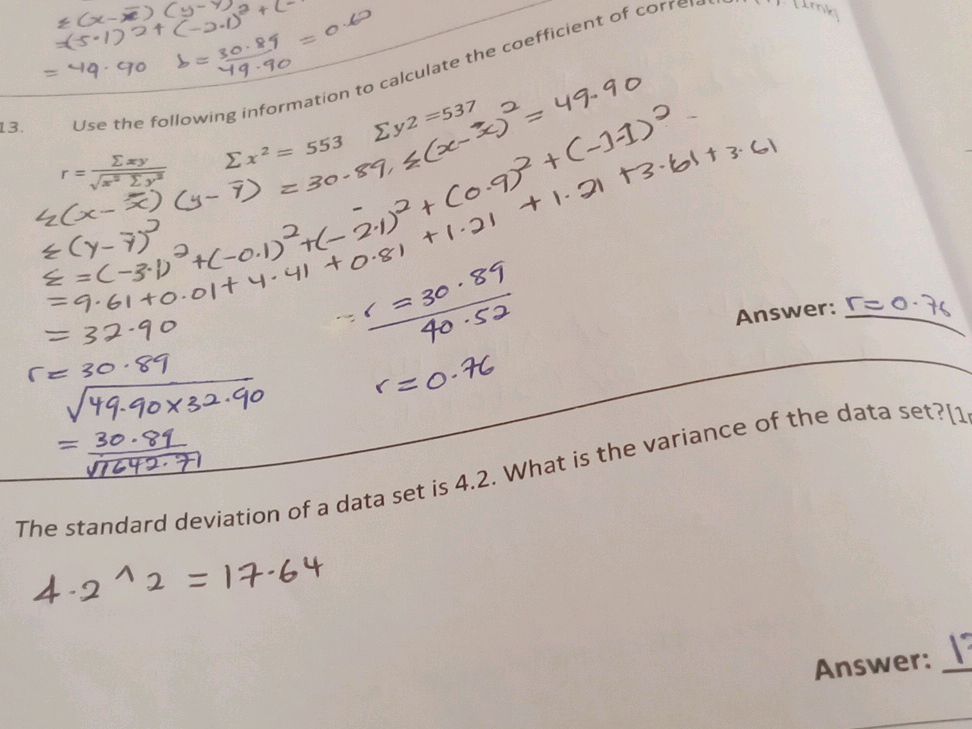 Σ(x-x̄)(y-ȳ)
=(5.1)²+(-2.1)²+(-
= 49.90 b = 30.89/49.90 = 0.62
13. Use the following information to calculate the coefficient of [1mk]
r = Σxy/√x² Σy² Σx² = 553 Σy2 =537
Σ(x-x̄)(y-ȳ) = 30.89, Σ(x-x̄)² = 49.90
Σ(y-ȳ)²
Σ =(-3.1)²+(-0.1)²+(-2.1)²+(0.9)²+(-1.1)²
=9.61+0.01+4.41+0.81+1.21+1.21+3.61+3.61
= 32.90
r = 30.89/√49.90×32.90
= 30.89/√1642.71
r = 30.89/40.52
r = 0.76
Answer: r=0.76
The standard deviation of a data set is 4.2. What is the variance of the data set?[1
4.2^2 = 17.64
Answer: